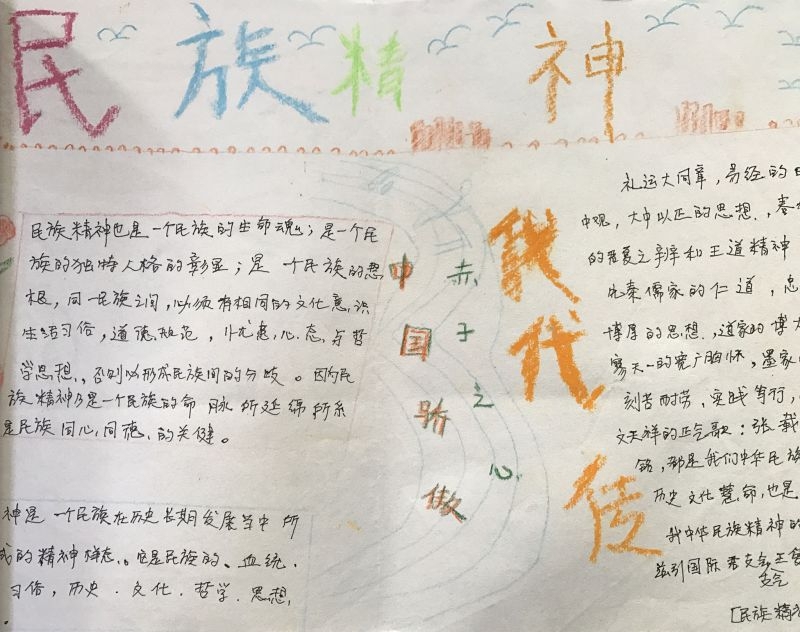 民族精神
民族精神也是一个民族的生命魂；是一个民
族的独特人格的彰显；是一个民族的思
根，同一民族之间，必须有相同的文化意识
生活习俗，道德规范，忧患，心态，与哲
学思想，否则必形成民族间的分歧。因此民
族精神乃是一个民族的命脉所延绵所系
是民族同心，同德，的关健。
神是一个民族在历史长期发展当中所
成的精神样态。它是民族的、血统、
习俗，历史．文化．哲学．思想，
中国骄傲
赤子之心
代代传
礼运大同章，易经的
中观，大中以正的思想，春
的 之辩和王道精神
先秦儒家的仁道，忠
博厚的思想，道家的博大
天一的宽广胸怀，墨家
刻苦耐劳，实践笃行，
文天祥的正气 ：张载
铭，都是我们中华民族
历史文化慧命，也是
我中华民族精神的
兹引国际
[民族精神